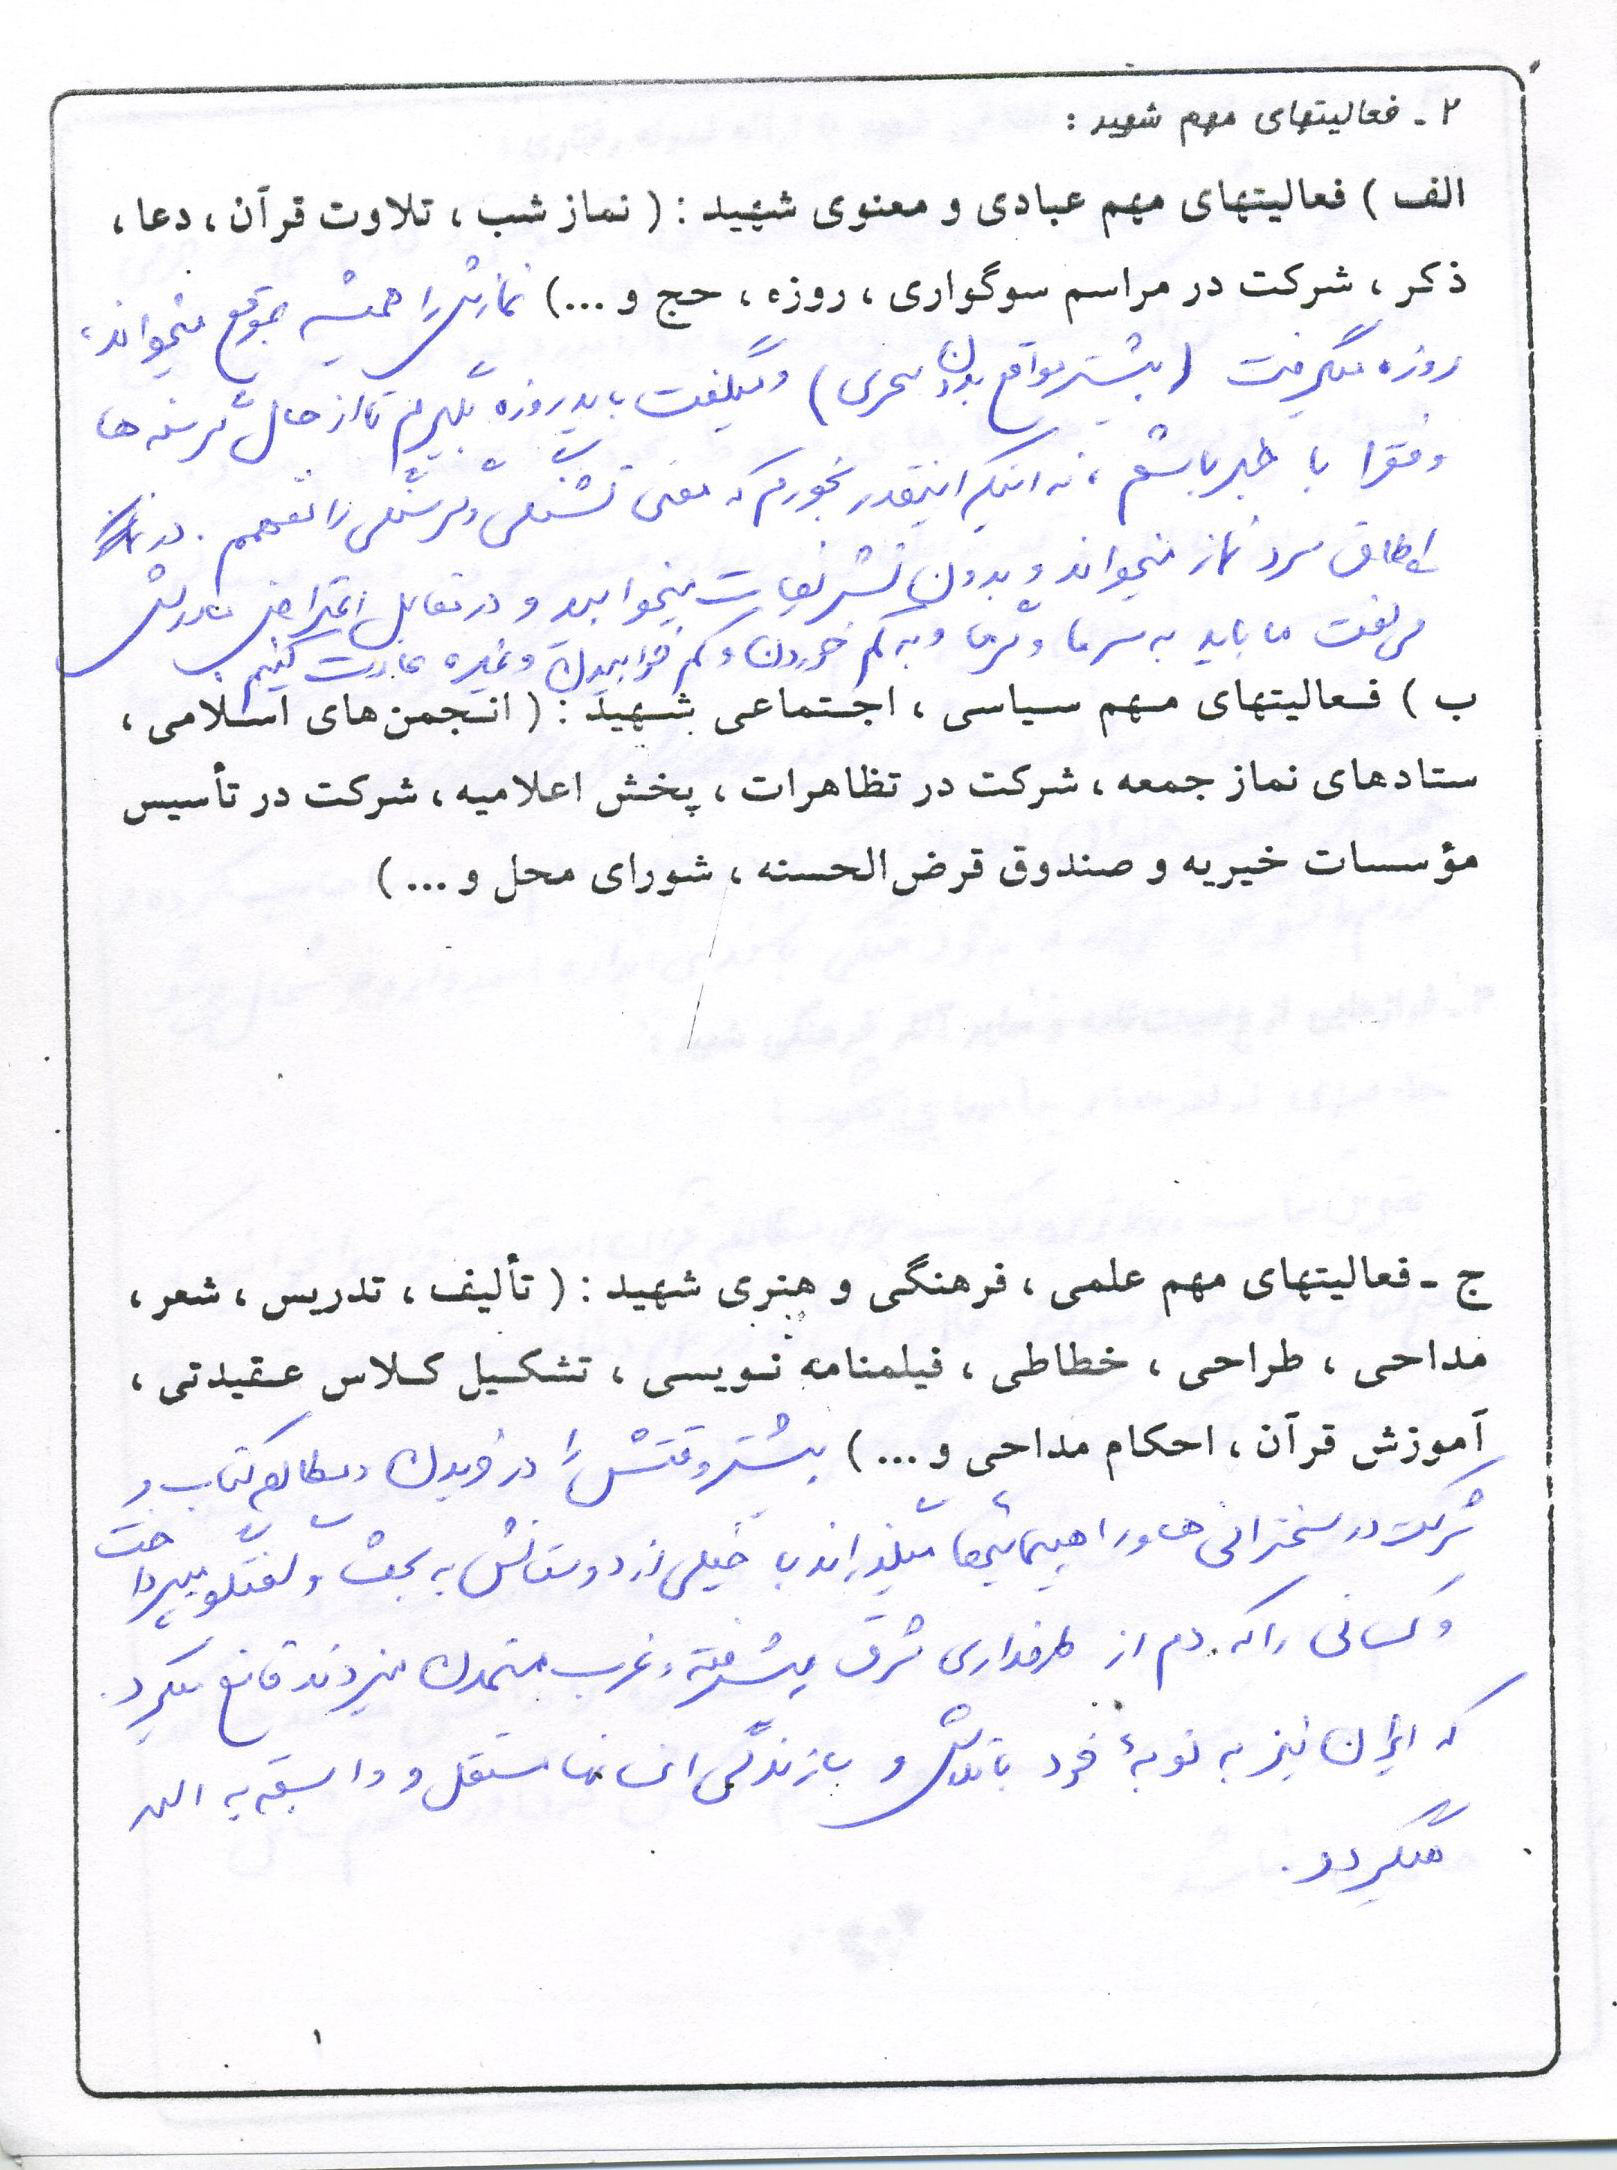 ۲ - فعالیتهای مهم شهید :
الف ) فعالیتهای مهم عبادی و معنوی شهید : ( نماز شب ، تلاوت قرآن ، دعا ،
ذکر ، شرکت در مراسم سوگواری ، روزه ، حج و ... ) نمازش را همیشه بموقع میخواند ،
روزه میگرفت ( بیشتر مواقع بدون سحری ) و میگفت باید روزه بگیرم تا از حال گرسنه ها
و فقرا با خبر باشم ، نه اینکه اینقدر بخورم که معنی تشنگی و گرسنگی را نفهمم . در
اطاق سرد نماز میخواند و بدون تشریفات میخوابید و در مقابل اعتراض مادرش
می گفت ما باید به سرما و گرما و به کم خوردن و کم خوابیدن و غیره عادت کنیم .
ب ) فعالیتهای مهم سیاسی ، اجتماعی شهید : ( انجمن های اسلامی ،
ستادهای نماز جمعه ، شرکت در تظاهرات ، پخش اعلامیه ، شرکت در تأسیس
مؤسسات خیریه و صندوق قرض الحسنه ، شورای محل و ... )
ج - فعالیتهای مهم علمی ، فرهنگی و هنری شهید : ( تألیف ، تدریس ، شعر ،
مداحی ، طراحی ، خطاطی ، فیلمنامه نویسی ، تشکیل کلاس عقیدتی ،
آموزش قرآن ، احکام مداحی و ... ) بیشتر وقتش را در و مطالعه کتاب و
شرکت در سخنرانی ها و راهپیمائیها میگذراند با خیلی از دوستانش به بحث و گفتگو میپرداخت
و کسانی را که دم از طرفداری شرق پیشرفته و غرب متمدن میزدند قانع میکرد .
که ایران نیز به نوبهٔ خود با تلاش و بازندگی انسانها مستقل و وابسته به الله
میگردد .
۱